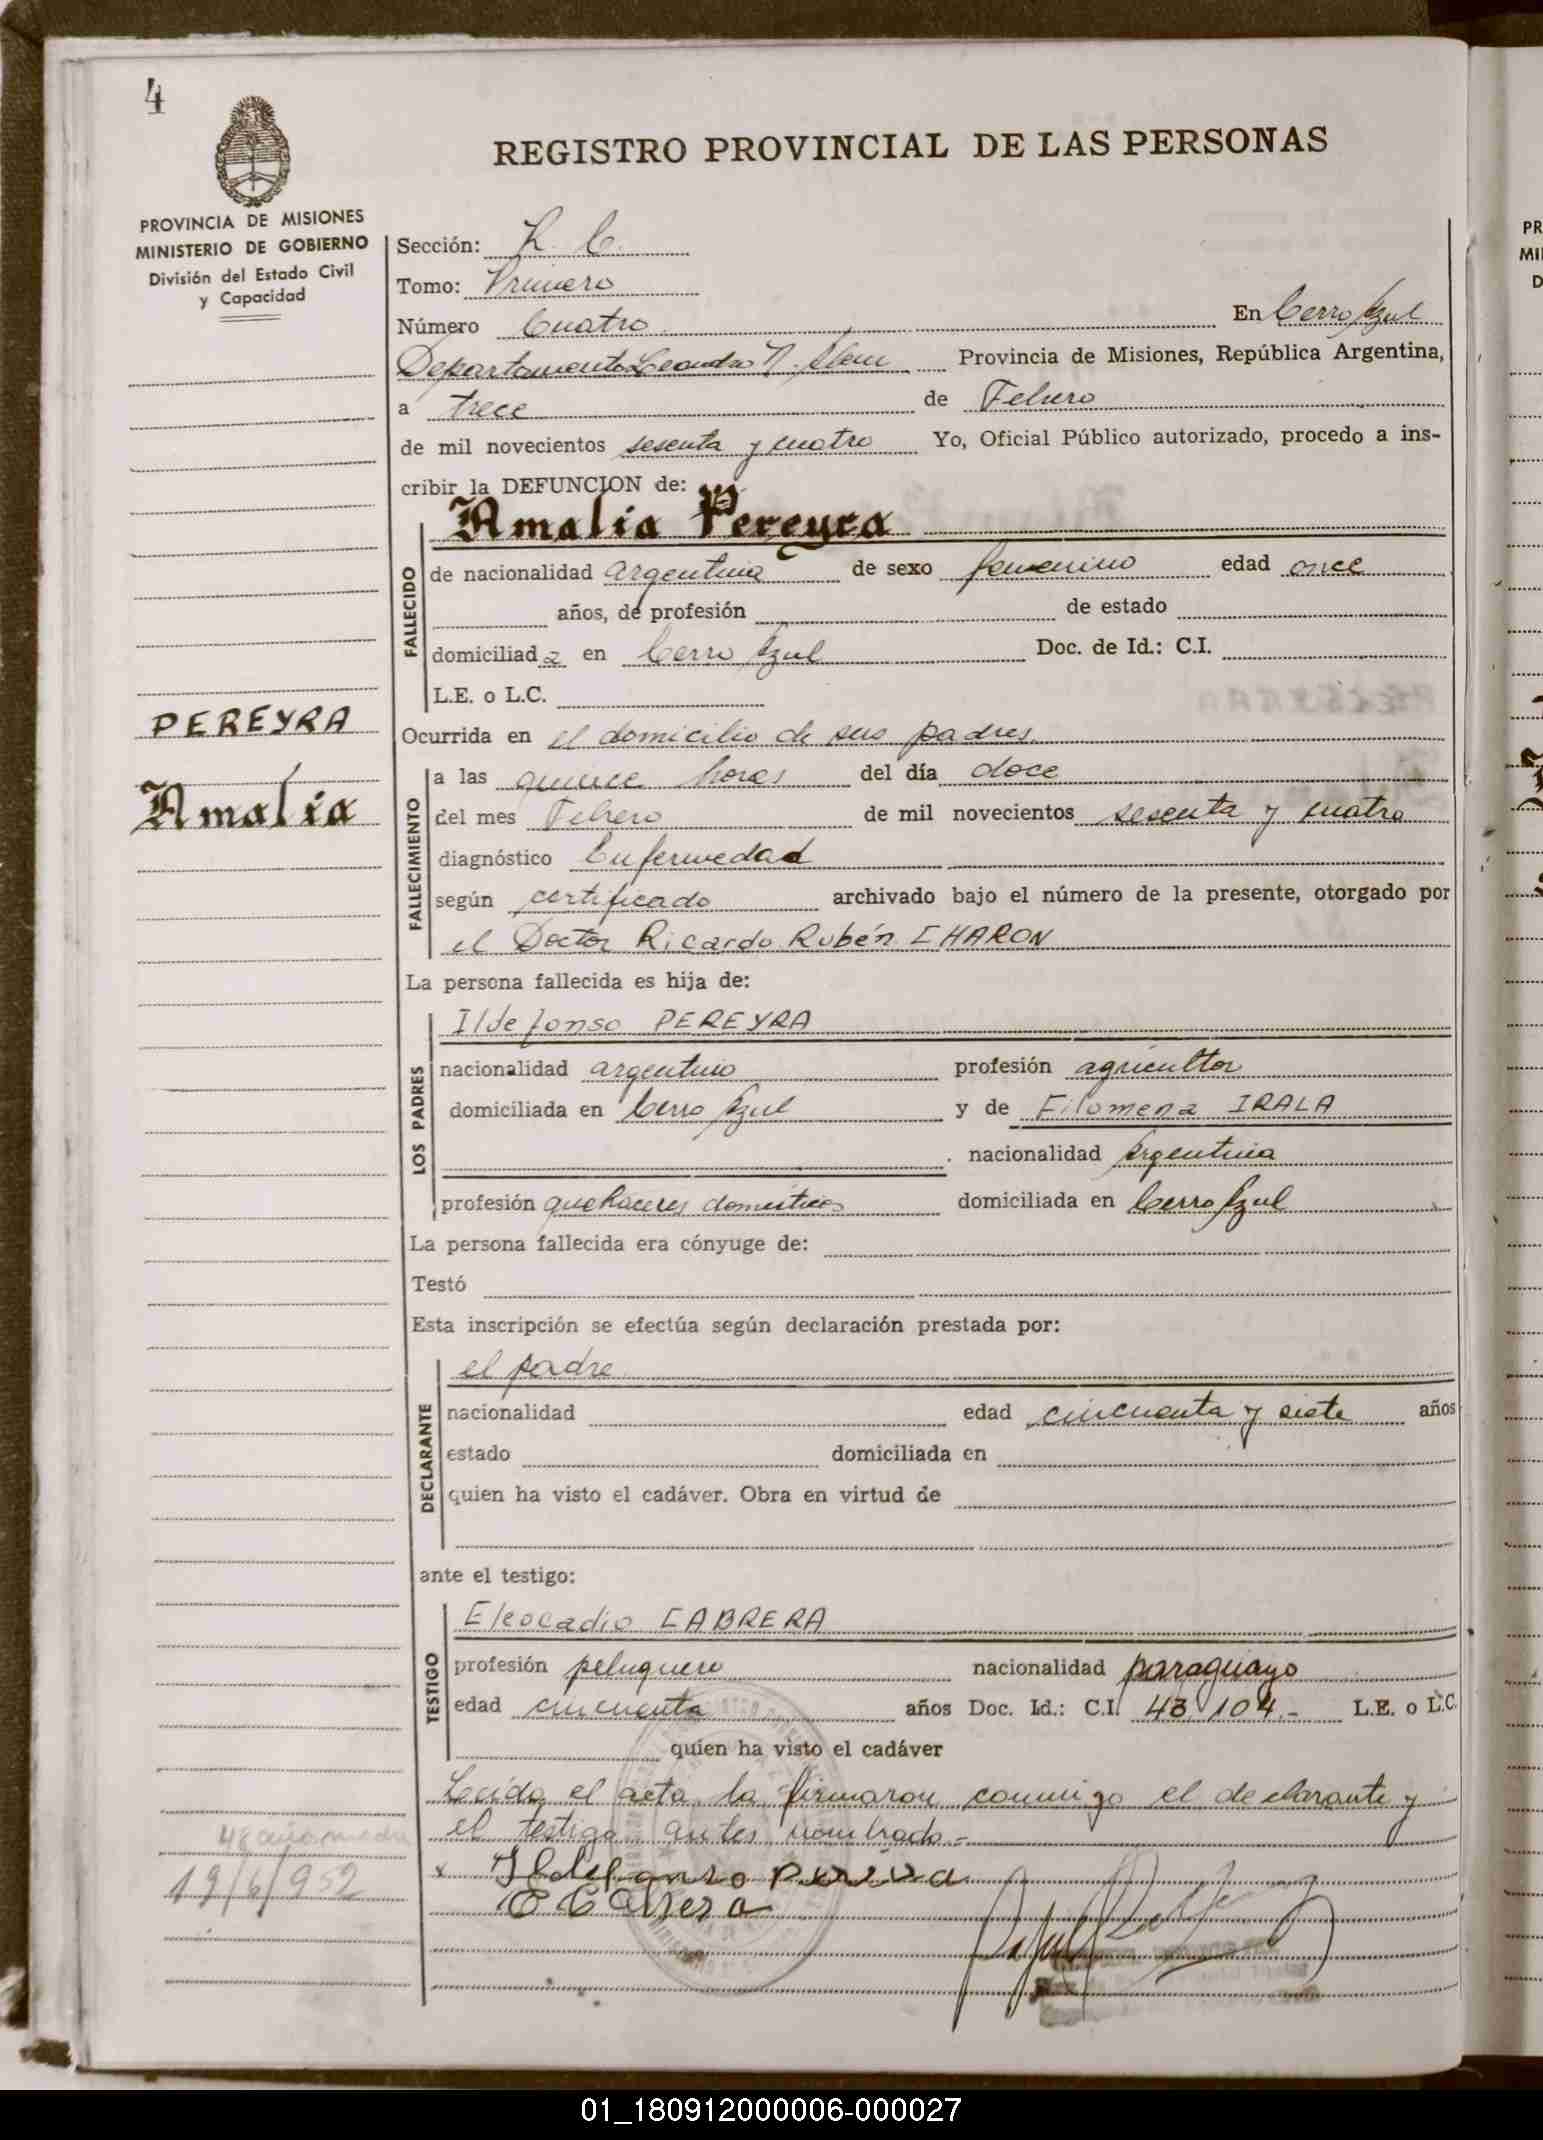 4
REGISTRO PROVINCIAL DE LAS PERSONAS
PROVINCIA DE MISIONES
MINISTERIO DE GOBIERNO
División del Estado Civil
y Capacidad
Sección:
Tomo: Primero
Número Cuatro En Cerro Azul
Departamento Leandro N. Alem Provincia de Misiones, República Argentina,
a trece de Febrero
de mil novecientos sesenta y cuatro Yo, Oficial Público autorizado, procedo a ins-
cribir la DEFUNCION de:
Amalia Pereyra
FALLECIDO
de nacionalidad argentina de sexo femenino edad once
años, de profesión de estado
domiciliada en Cerro Azul Doc. de Id.: C.I.
L.E. o L.C.
PEREYRA
Amalia
Ocurrida en el domicilio de sus padres
FALLECIMIENTO
a las quince horas del día doce
del mes Febrero de mil novecientos sesenta y cuatro
diagnóstico Enfermedad
según certificado archivado bajo el número de la presente, otorgado por
el Doctor Ricardo Rubén CHARON
La persona fallecida es hija de:
LOS PADRES
Ildefonso PEREYRA
nacionalidad argentino profesión agricultor
domiciliada en Cerro Azul y de Filomena IRALA
nacionalidad Argentina
profesión quehaceres domésticos domiciliada en Cerro Azul
La persona fallecida era cónyuge de:
Testó
Esta inscripción se efectúa según declaración prestada por:
DECLARANTE
el padre
nacionalidad edad cincuenta y siete años
estado domiciliada en
quien ha visto el cadáver. Obra en virtud de
ante el testigo:
TESTIGO
Eleocadio CABRERA
profesión peluquero nacionalidad paraguayo
edad cincuenta años Doc. Id.: C.I. 43.104.- L.E. o L.C.
quien ha visto el cadáver
Leída el acta, la firmaron conmigo el declarante y
el testigo antes nombrado.-
19/6/952
x Ildefonso
01_180912000006-000027